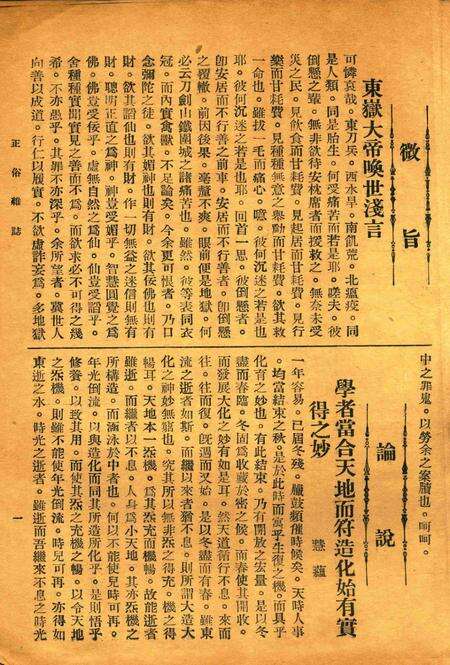 徵旨
東嶽大帝喚世淺言
可憐哀哉。東刀兵。西水旱。南飢荒。北瘟疫。同
是人類。同是胎生。何受痛苦而若是耶。嗟夫。彼
倒懸之輩。無非欲待安枕席者而援救之。無奈未受
災之民。見飲食而甘耗費。見起居而甘耗費。見行
樂而甘耗費。見種種無意之舉動而甘耗費。欲其救
一命也。雖拔一毛而痛心。噫。彼何沉迷之若是也
耶。彼何沉迷之若是也耶。回首一思。彼倒懸者。
卽安居而不行善之前車。安居而不行善者。卽倒懸
之覆轍。前因後果。毫釐不爽。眼前便是地獄。何
必云刀劍山鐵圍城之諸痛苦也。雖然。彼等表同衣
冠。而內實禽獸。不足論矣。今余更可恨者。乃口
念彌陀之徒。欲其媚神也則有財。欲其佞佛也則有
財。欲其諂仙也則有財。作一切無益之迷信則無有
財。聰明正直之爲神。神豈受媚乎。智慧圓覺之爲
佛。佛豈受佞乎。虛無自然之爲仙。仙豈受諂乎。
舍種種實聞實見之善而不爲。而欲求必不可得之殘
希。不亦愚乎。其罪不亦深乎。余所望者。冀世人
向善以成道。行仁以履實。不欲虛詐妄爲。多地獄
正俗雜誌
一
中之罪鬼。以勞余之案牘也。呵呵。
論說
學者當合天地而符造化始有實
得之妙
慧蘊
一年容易。已屆冬殘。臘鼓頻催時候矣。天時人事
。均當結束之秋。是於此時而寓乎生復之機。而具乎
化育之妙也。有此結束。乃有開放之宏量。是以冬
盡而春臨。冬固爲收藏於密之候。而春使其開收。
而發展大化之妙有如是耳。然天道循行不息。來而
往。往而復。旣遇而又始。是以冬盡而有春。雖東
流之逝者如斯。而繼以來者猶不息。則所謂大造大
化之神妙無窮也。究其所以無非炁之得充。機之得
暢耳。天地本一炁機。爲其炁充而機暢。故能逝者
雖逝。而繼者以不息。人身爲小天地。其亦炁機之
所構造。而涵泳於中者也。何以不能使兒時可再。
年光倒流。以與造化而同其造所化乎。是則悟乎
修養。以致其用。而使其炁之充機之暢。以合天地
之炁機。則雖不能使年光倒流。時兒可再。亦得如
東逝之水。時光之逝者。雖逝而吾繼來不息之時光